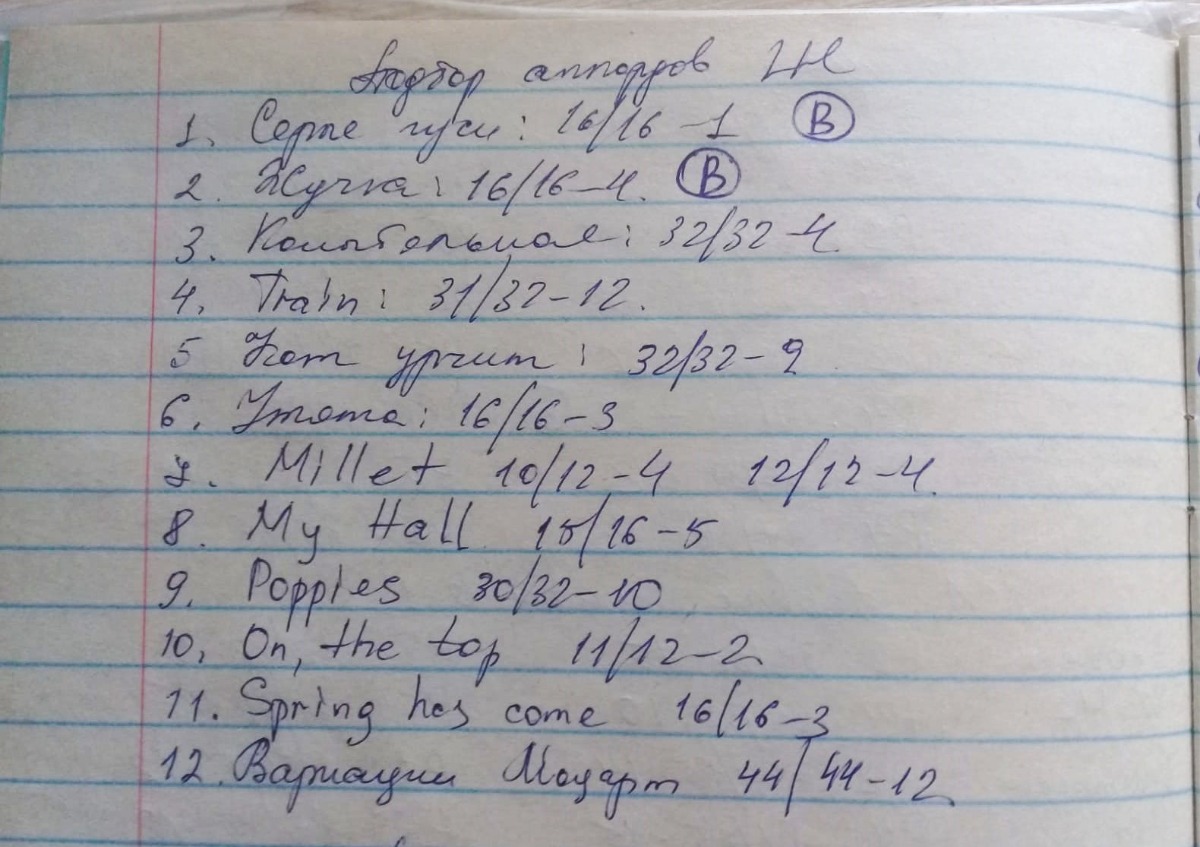 Подбор аккордов ЦН
1. Серые гуси: 16/16-1 В
2. Жучка: 16/16-4. В
3. Колыбельная: 32/32-4
4. Train: 31/32-12.
5 Кот урчит: 32/32-9
6. Утята: 16/16-3
7. Millet 10/12-4 12/12-4.
8. My Hall 15/16-5
9. Poppies 30/32-10
10, On, the top 11/12-2
11. Spring has come 16/16-3
12. Вариации Моцарт 44/44-12